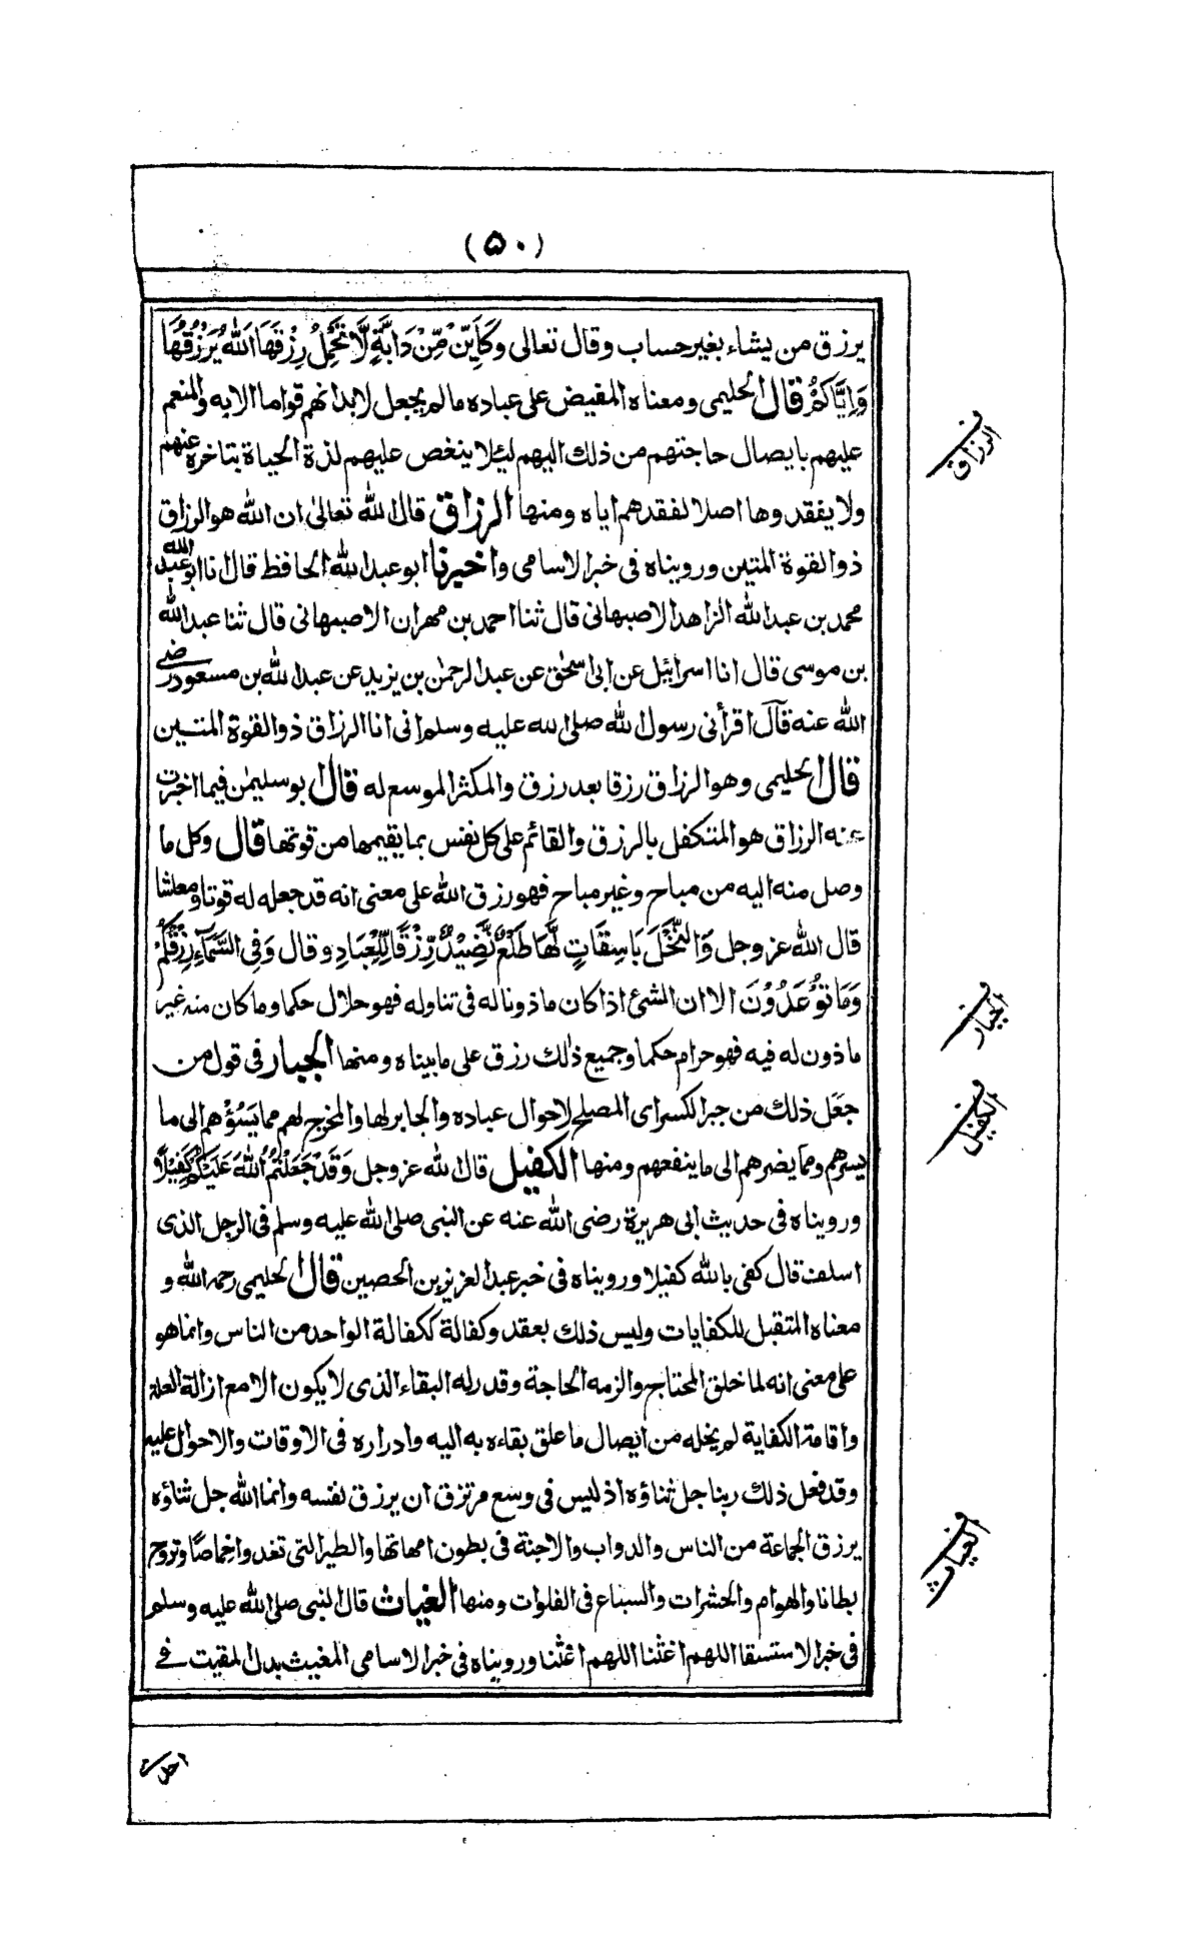 (۵۰)
يرزق من يشاء بغير حساب وقال تعالى وَكَأَيِّنْ مِّنْ دَابَّةٍ لَّا تَحْمِلُ رِزْقَهَا اَللّٰهُ يَرْزُقُهَا
وَاِيَّاكُمْ قال الحليمى ومعناه المفيض على عباده ما لم يجعل لابدانهم قواما الا به والمنعم
عليهم بايصال حاجتهم من ذلك اليهم لئلا ينغص عليهم لذة الحياة بتاخره عنهم
ولا يفقدوها اصلا لفقدهم اياه ومنها الرزاق قال الله تعالى ان الله هو الرزاق
ذو القوة المتين ورويناه فى خبر الاسامى واخبرنا ابو عبد الله الحافظ قال انا ابو عبد الله
محمد بن عبد الله الزاهد الاصبهانى قال ثنا احمد بن مهران الاصبهانى قال ثنا عبد الله
بن موسى قال انا اسرائيل عن ابى اسحٰق عن عبد الرحمٰن بن يزيد عن عبد الله بن مسعود رضى
الله عنه قال اقرأنى رسول الله صلى الله عليه وسلم انى انا الرزاق ذو القوة المتين
قال الحليمى وهو الرزاق رزقا بعد رزق والمكثر الموسع له قال ابو سليمٰن فيما اخبرت
عنه الرزاق هو المتكفل بالرزق والقائم على كل نفس بما يقيمها من قوتها قال وكل ما
وصل منه اليه من مباح وغير مباح فهو رزق الله على معنى انه قد جعله له قوتا ومعاشا
قال الله عز وجل وَالنَّخْلَ بَاسِقَاتٍ لَّهَا طَلْعٌ نَّضِيْدٌ رِّزْقًا لِّلْعِبَادِ وقال وَفِى السَّمَآءِ رِزْقُكُمْ
وَمَا تُوْعَدُوْنَ الا ان الشئ اذا كان ماذونا له فى تناوله فهو حلال حكما وما كان منه غير
ماذون له فيه فهو حرام حكما وجميع ذٰلك رزق على ما بيناه ومنها الجبار فى قول من
جعل ذلك من جبر الكسر اى المصلح لاحوال عباده والجابر لها والمخرج لهم مما يَسُؤْهم الى ما
يسرهم ومما يضرهم الى ما ينفعهم ومنها الكفيل قال الله عز وجل وَقَدْ جَعَلْتُمُ اللّٰهَ عَلَيْكُمْ كَفِيْلًا
ورويناه فى حديث ابى هريرة رضى الله عنه عن النبى صلى الله عليه وسلم فى الرجل الذى
اسلف قال كفى بالله كفيلا ورويناه فى خبر عبد العزيز بن الحصين قال الحليمى رحمه الله و
معناه المتقبل للكفايات وليس ذلك بعقد وكفالة ككفالة الواحد من الناس وانما هو
على معنى انه لما خلق المحتاج والزمه الحاجة وقدر له البقاء الذى لا يكون الا مع ازالة العلة
واقامة الكفاية لم يخله من ايصال ما علق بقاءه به اليه وادراره فى الاوقات والاحوال عليه
وقد فعل ذلك ربنا جل ثناؤه اذ ليس فى وسع مرتزق ان يرزق نفسه وانما الله جل ثناؤه
يرزق الجماعة من الناس والدواب والاجنة فى بطون امهاتها والطير التى تغدو خماصًا وتروح
بطانا والهوام والحشرات والسباع فى الفلوات ومنها الغياث قال النبى صلى الله عليه وسلم
فى خبر الاستسقا اللهم اغثنا اللهم اغثنا ورويناه فى خبر الاسامى المغيث بدل المقيت فى
الرزاق
الجبار
الكفيل
الغياث